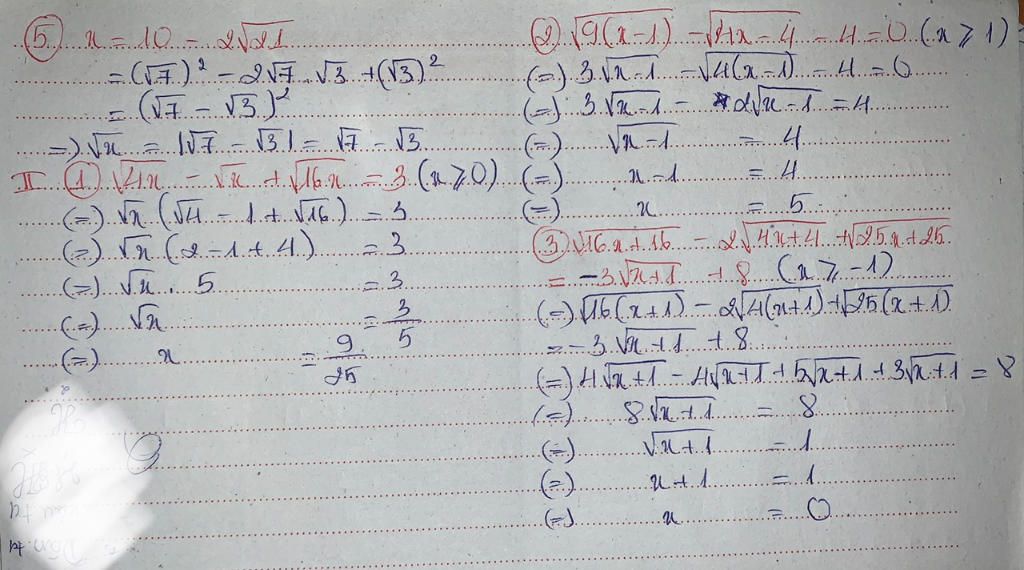 ⑤ x = 10 - 2√21
= (√7)² - 2√7 . √3 + (√3)²
= (√7 - √3)²
=) √x = |√7 - √3| = √7 - √3
II ① √4x - √x + √16x = 3 (x ⩾ 0)
(=) √x (√4 - 1 + √16) = 3
(=) √x (2 - 1 + 4) = 3
(=) √x . 5 = 3
(=) √x = 3/5
(=) x = 9/25
② √9(x-1) - √4x-4 - 4 = 0 (x ⩾ 1)
(=) 3√x-1 - √4(x-1) - 4 = 0
(=) 3√x-1 - 2√x-1 = 4
(=) √x-1 = 4
(=) x-1 = 4
(=) x = 5
③ √16x+16 - 2√4x+4 + √25x+25
= -3√x+1 + 8 (x ⩾ -1)
(=) √16(x+1) - 2√4(x+1) + √25(x+1)
= -3√x+1 + 8
(=) 4√x+1 - 4√x+1 + 5√x+1 + 3√x+1 = 8
(=) 8√x+1 = 8
(=) √x+1 = 1
(=) x+1 = 1
(=) x = 0